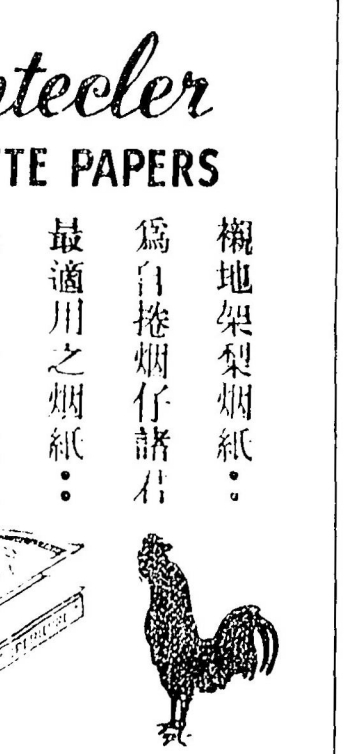 tecler
TE PAPERS
襯地架梨烟紙：
爲自捲烟仔諸君
最適用之烟紙：